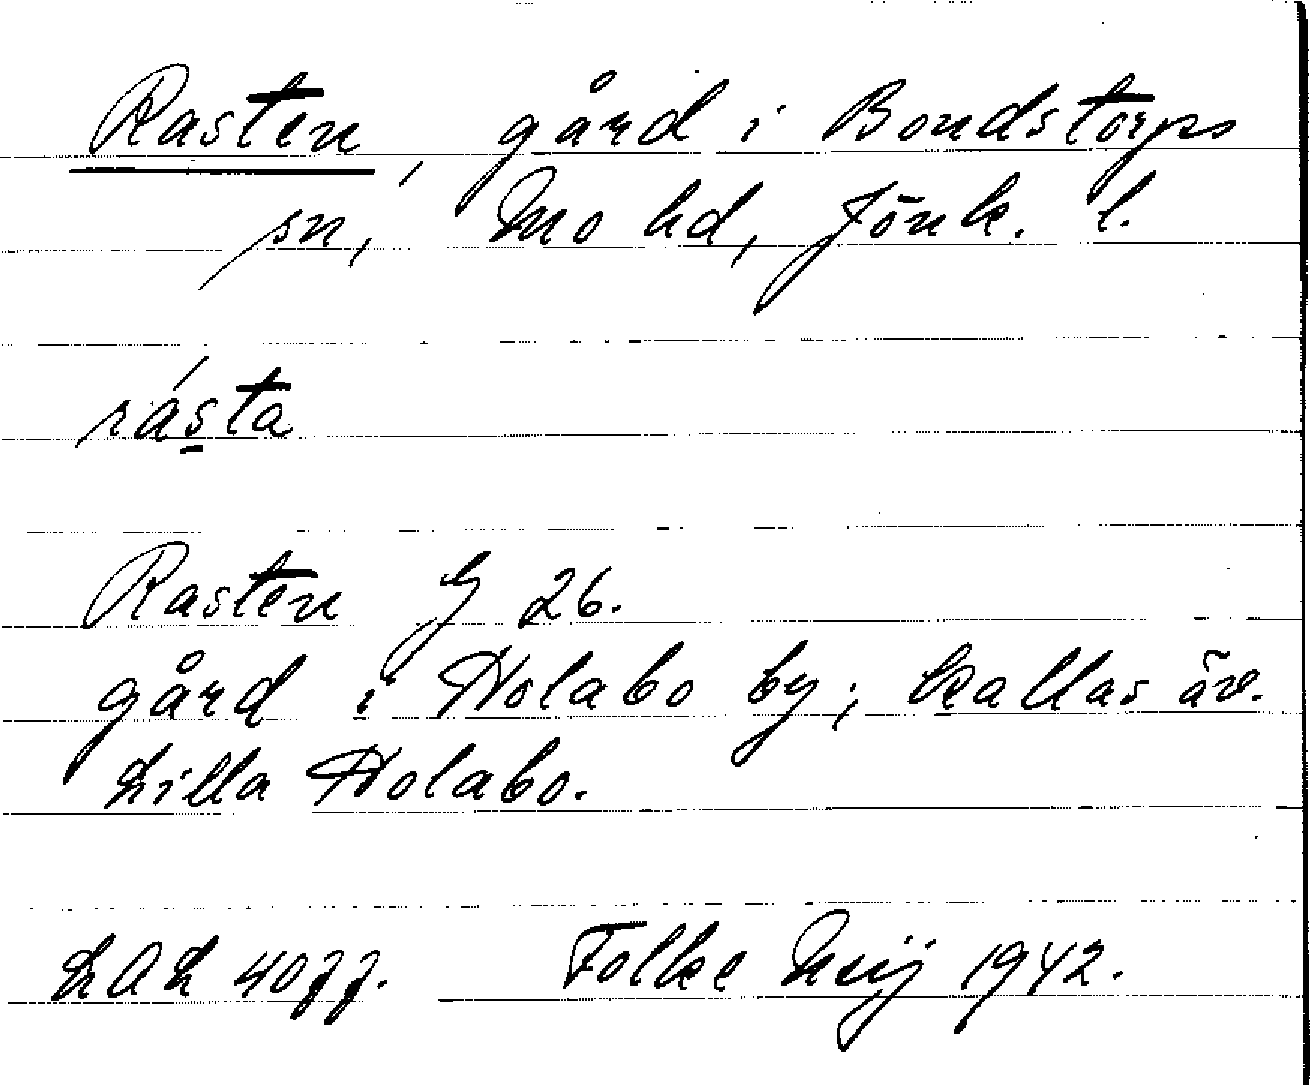 Rasten, gård i Bondstorps
sn, Mo hd, Jönk. l.
rásta
Rasten G 26.
gård i Holabo by; kallas äv.
Lilla Holabo.
LAL 40ff. Folke Meij 1942.